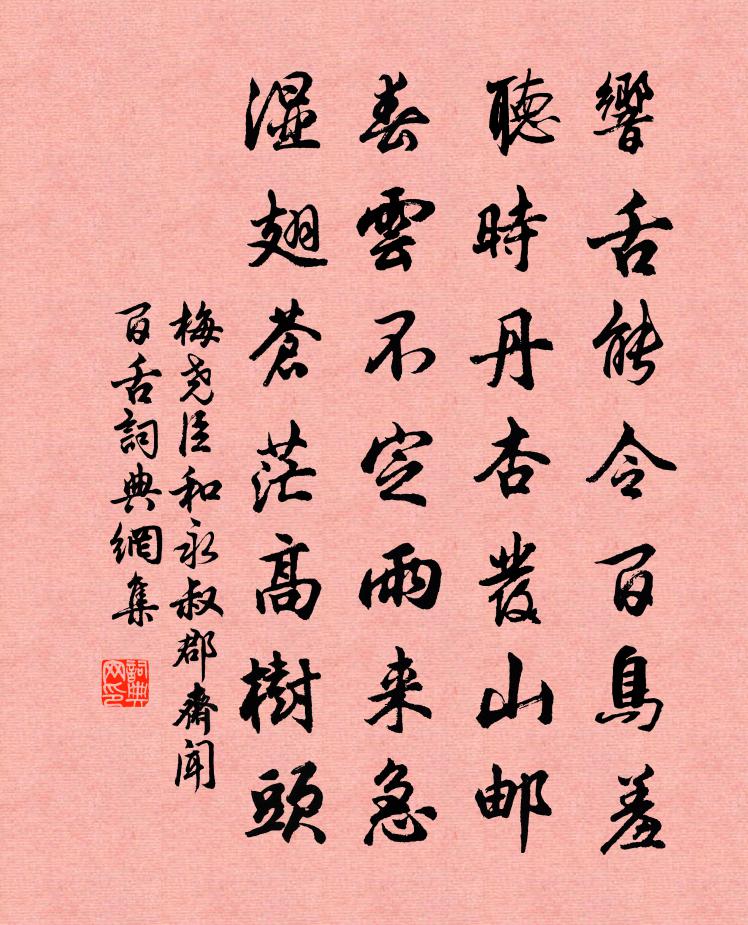 響舌能令百鳥羞
聽時丹杏發山邮
春雲不定雨来急
湿翅蒼茫高樹頭
梅尧臣和永叔郡齋聞
百舌詞典網集
詞典
网印